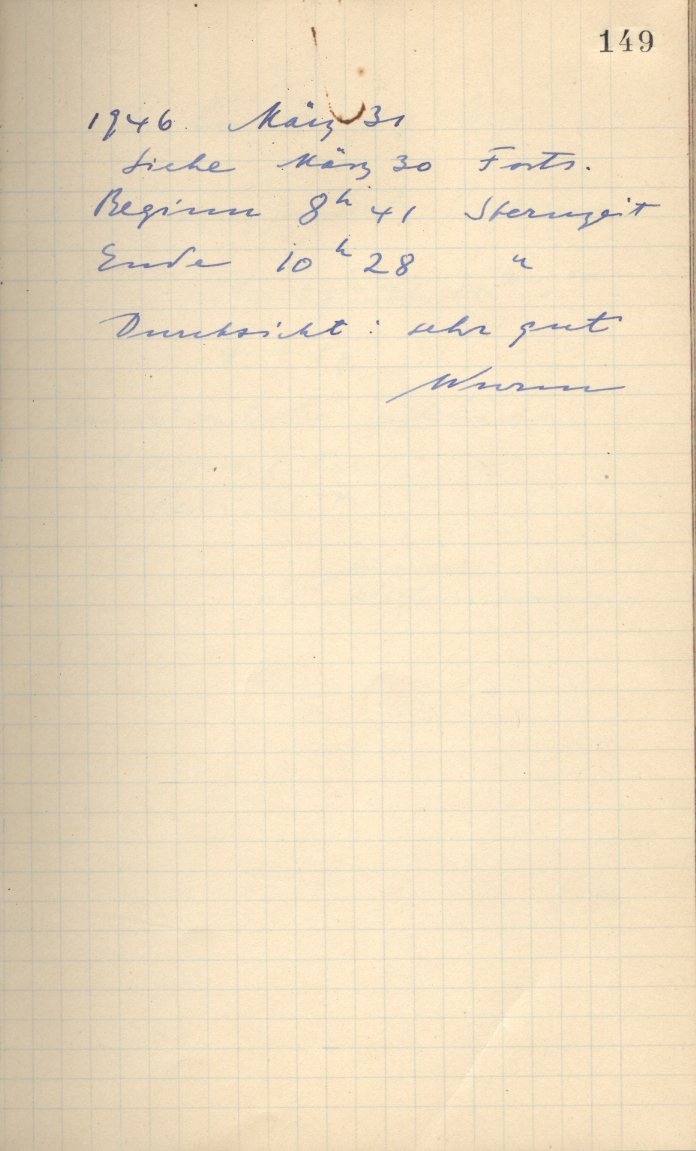 149
1946 März 31
Siehe März 30 Forts.
Beginn 8ʰ 41 Sternzeit
Ende 10ʰ 28 "
Durchsicht: sehr gut
Wurm